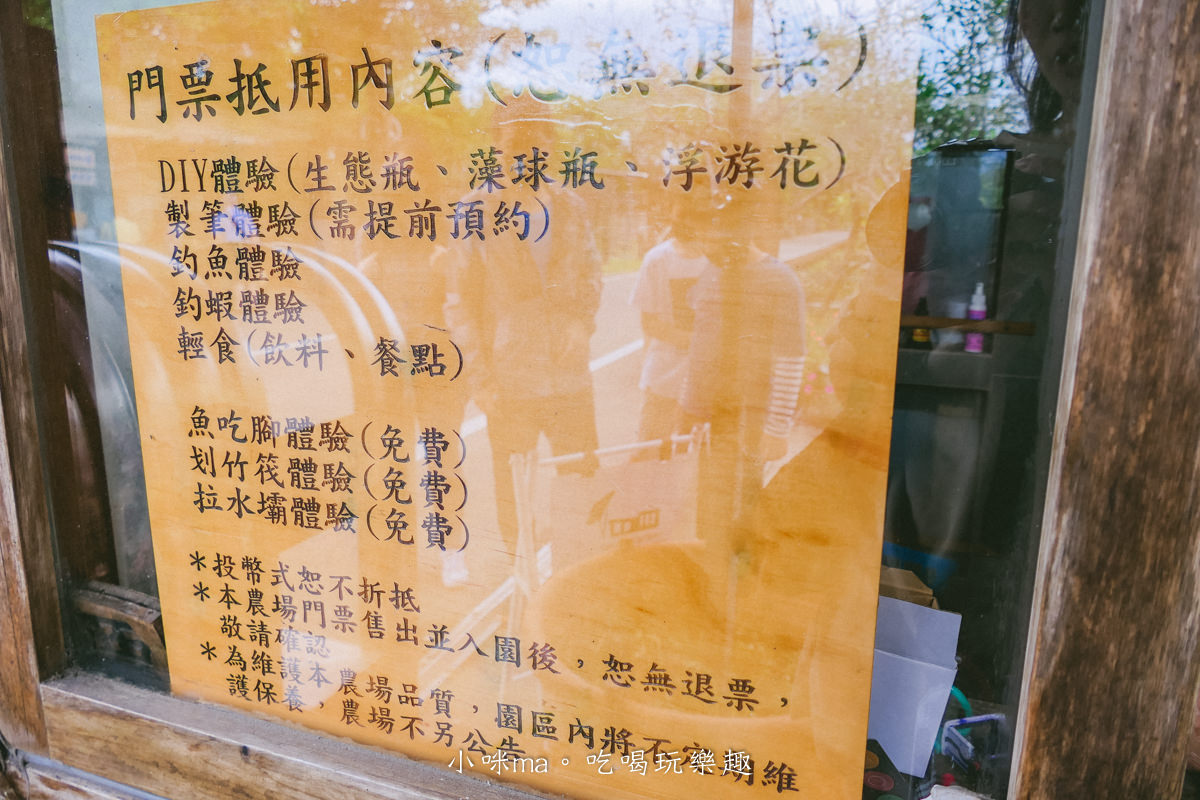 門票抵用內容(恕無退票)
DIY體驗(生態瓶、藻球瓶、浮游花)
製筆體驗(需提前預約)
釣魚體驗
釣蝦體驗
輕食(飲料、餐點)
魚吃腳體驗(免費)
划竹筏體驗(免費)
拉水壩體驗(免費)
*投幣式恕不折抵
*本農場門票售出並入園後,恕無退票,
敬請確認
*為維護本農場品質,園區內將不定期維
護保養,農場不另公告
小咪ma。吃喝玩樂趣